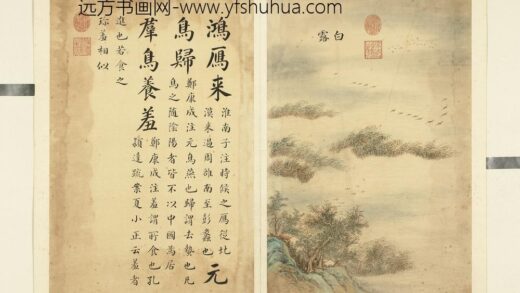 远方书画网-www.yfshuhua.com
白露
鴻鴈来
淮南子注時候之鴈從北
漠来過周雒南至彭蠡也
元
鳥歸
鄭康成注元鳥燕也歸謂去蟄也凡
鳥之随陰陽者皆不以中國為居
羣鳥養羞
鄭康成注羞謂所食也孔
頴達疏案夏小正云羞者
進也若食之
珎羞相似